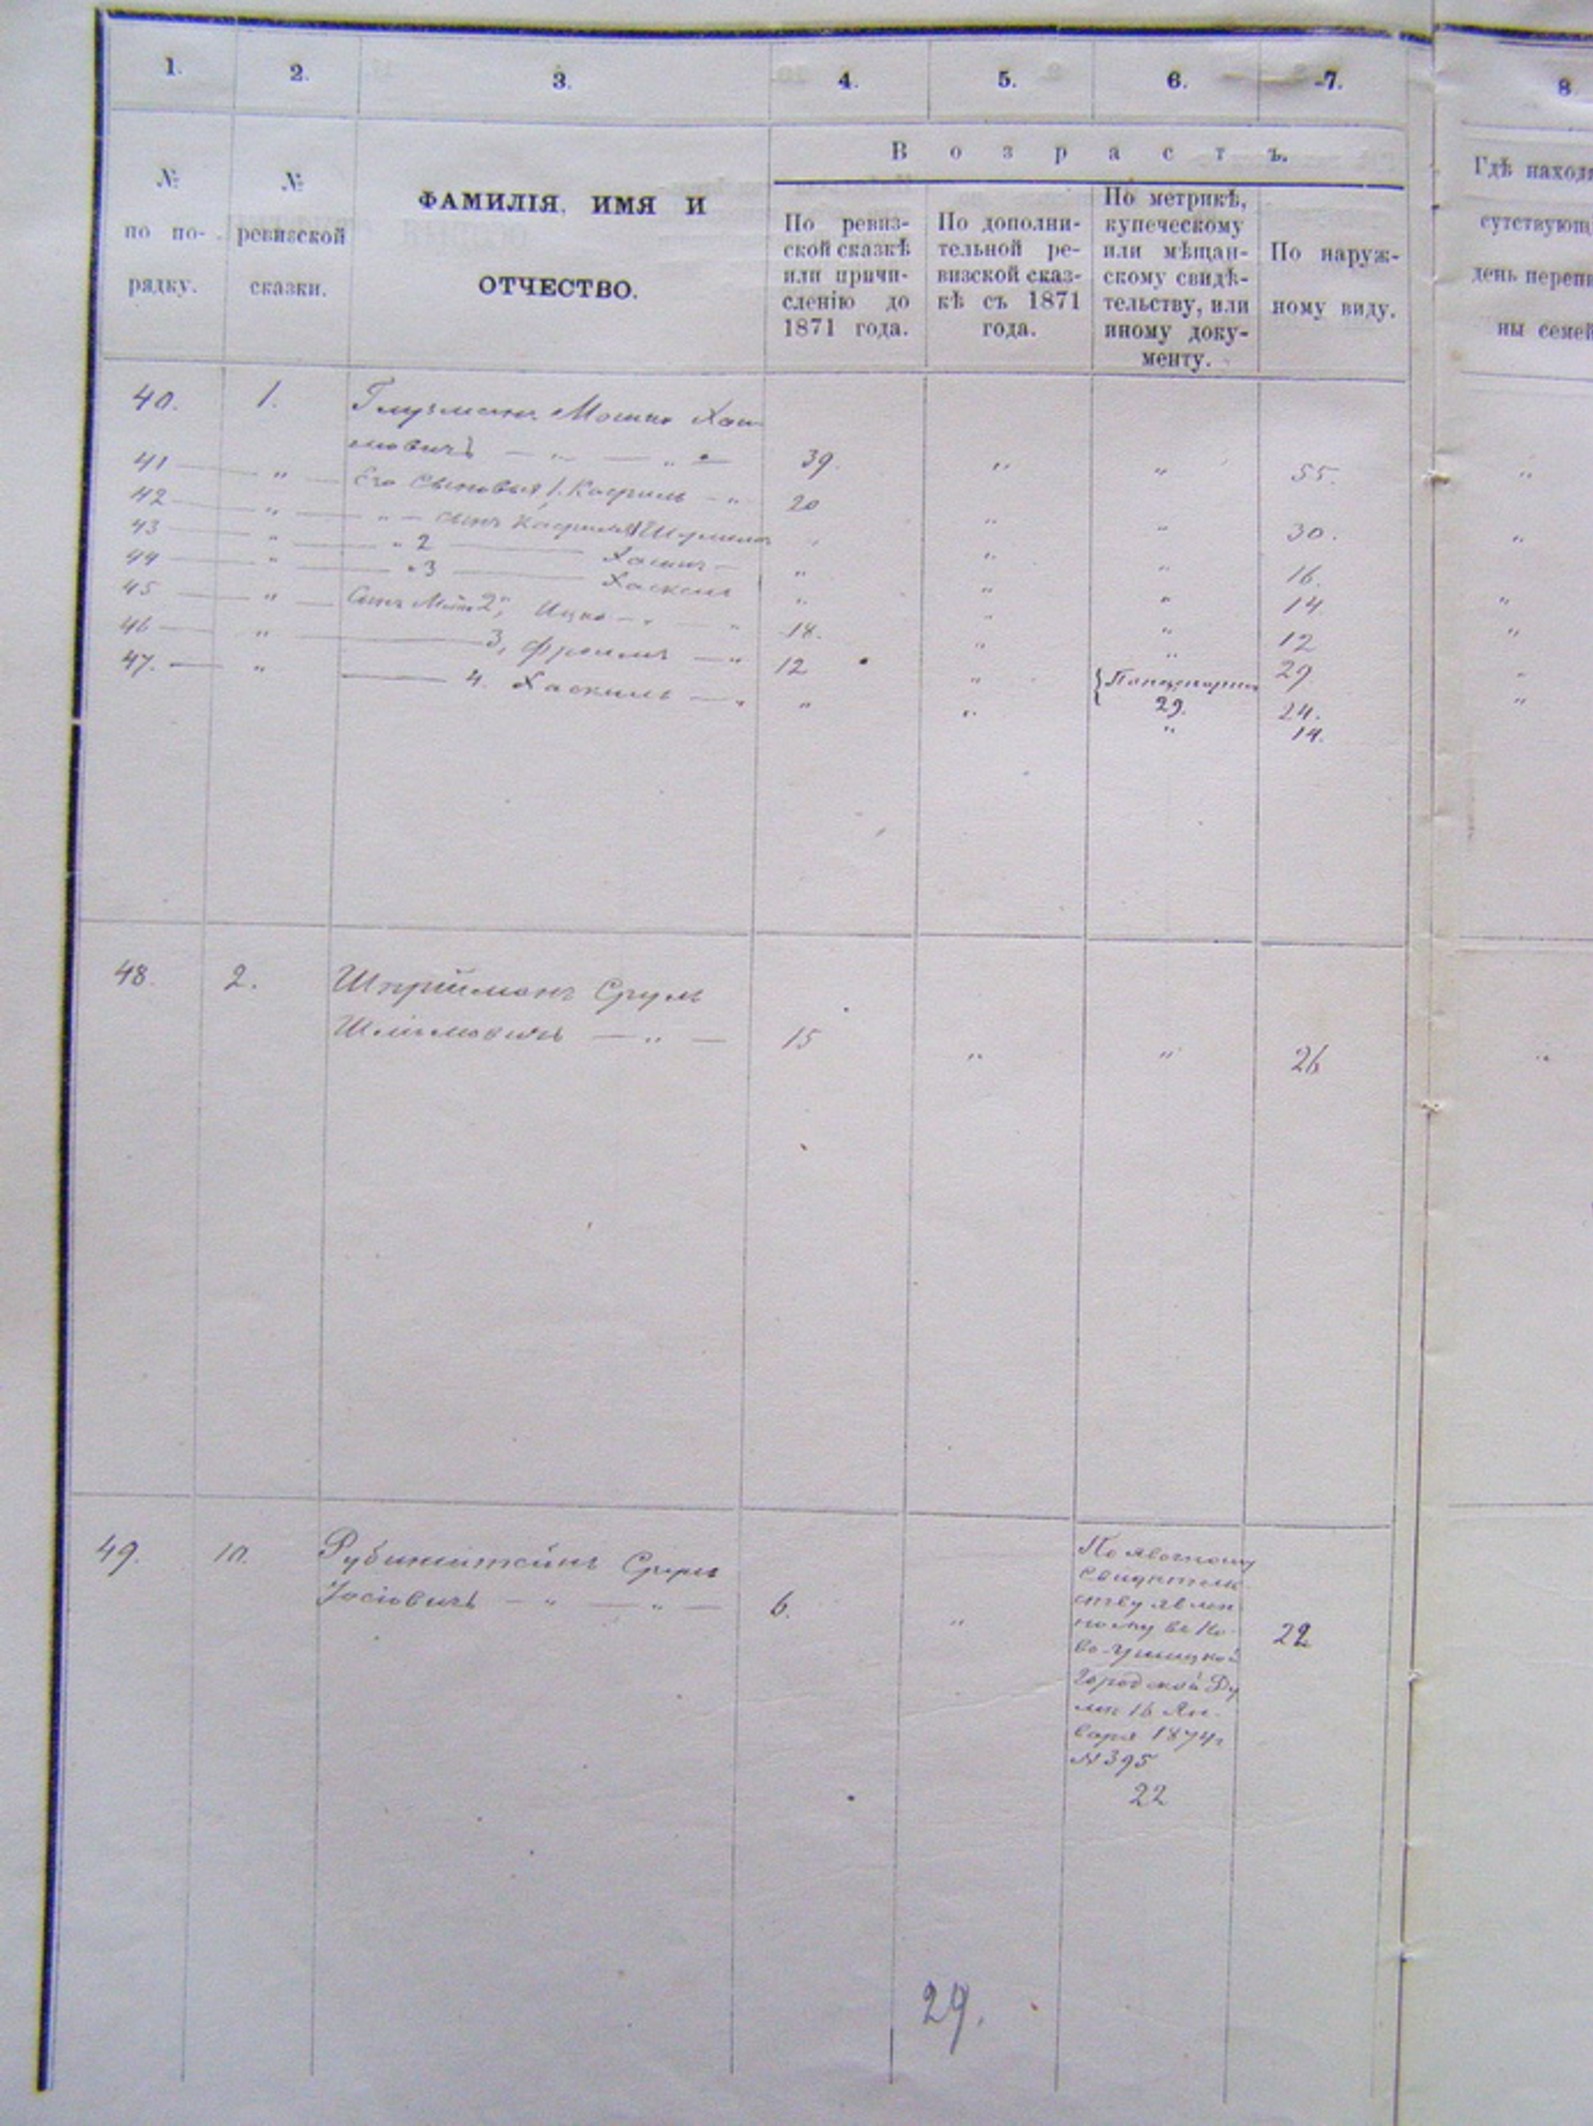 1. 2. 3. 4. 5. 6. 7. 8
В о з р а с т ъ.
№ по по- рядку.
№ ревизской сказки.
ФАМИЛІЯ, ИМЯ И
ОТЧЕСТВО.
По ревиз-
ской сказкѣ
или причи-
сленію до
1871 года.
По дополни-
тельной ре-
визской сказ-
кѣ съ 1871
года.
По метрикѣ,
купеческому
или мѣщан-
скому свидѣ-
тельству, или
иному доку-
менту.
По наруж-
ному виду.
Гдѣ находя
сутствующ
день перепи
ны семей
40. 1. Глузманъ Мошко Хаи-
мовичъ — „ — „ — 39. „ „ 55. „
41 — „ — Его сыновья 1. Касриль — „ 20 „ „ 30. „
42 — „ — „ — сынъ Касриля 1 Шулимъ „ „ „ 16.
43 — „ — „ 2 — Хаимъ — „ „ „ 14 „
44 — „ — „ 3 — Хаскель „ „ „ 12 „
45 — „ — Сынъ Мошки 2, Ицко — „ — „ 18. „ „ 29 „
46 — „ — 3, Фроимъ — „ 12 „ 29. 24. „
47. — „ — 4. Хаскиль — „ „ „ „ 14.
48. 2. Шприйманъ Сруль
Шлiомовичъ — „ — 15 „ „ 26 „
49. 10. Рубинштейнъ Сруль
Іосіовичъ — „ — „ — 6. „ 22
По явочному
свидѣтель-
ству явлен-
ному въ Но-
во-Ушицкой
Городской Ду
мѣ 16 Ян-
варя 1874г
№ 395
22
29.